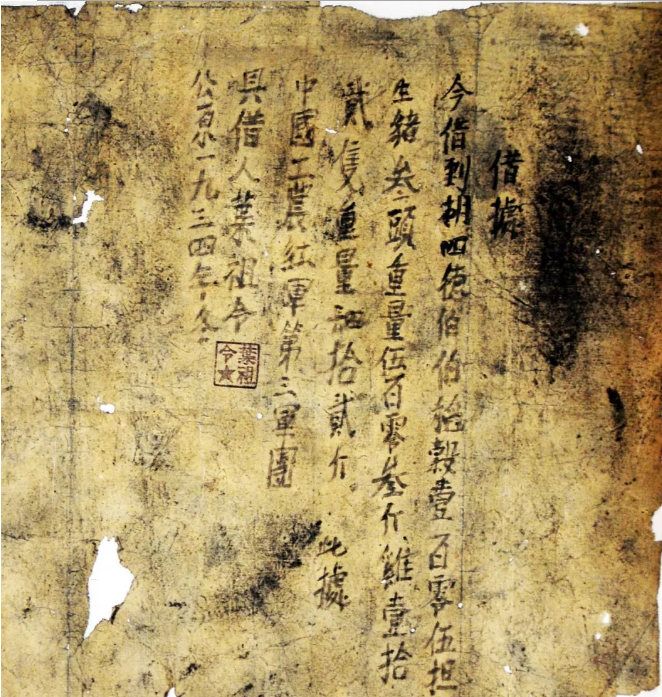 借據
今借到胡四德伯伯稻穀壹百零伍担
生豬叁頭重量伍百零叁斤雞壹拾
貳隻重量四拾貳斤 此據
中國工農紅軍第三軍團
具借人葉祖令
公原一九三四年冬
葉祖令★